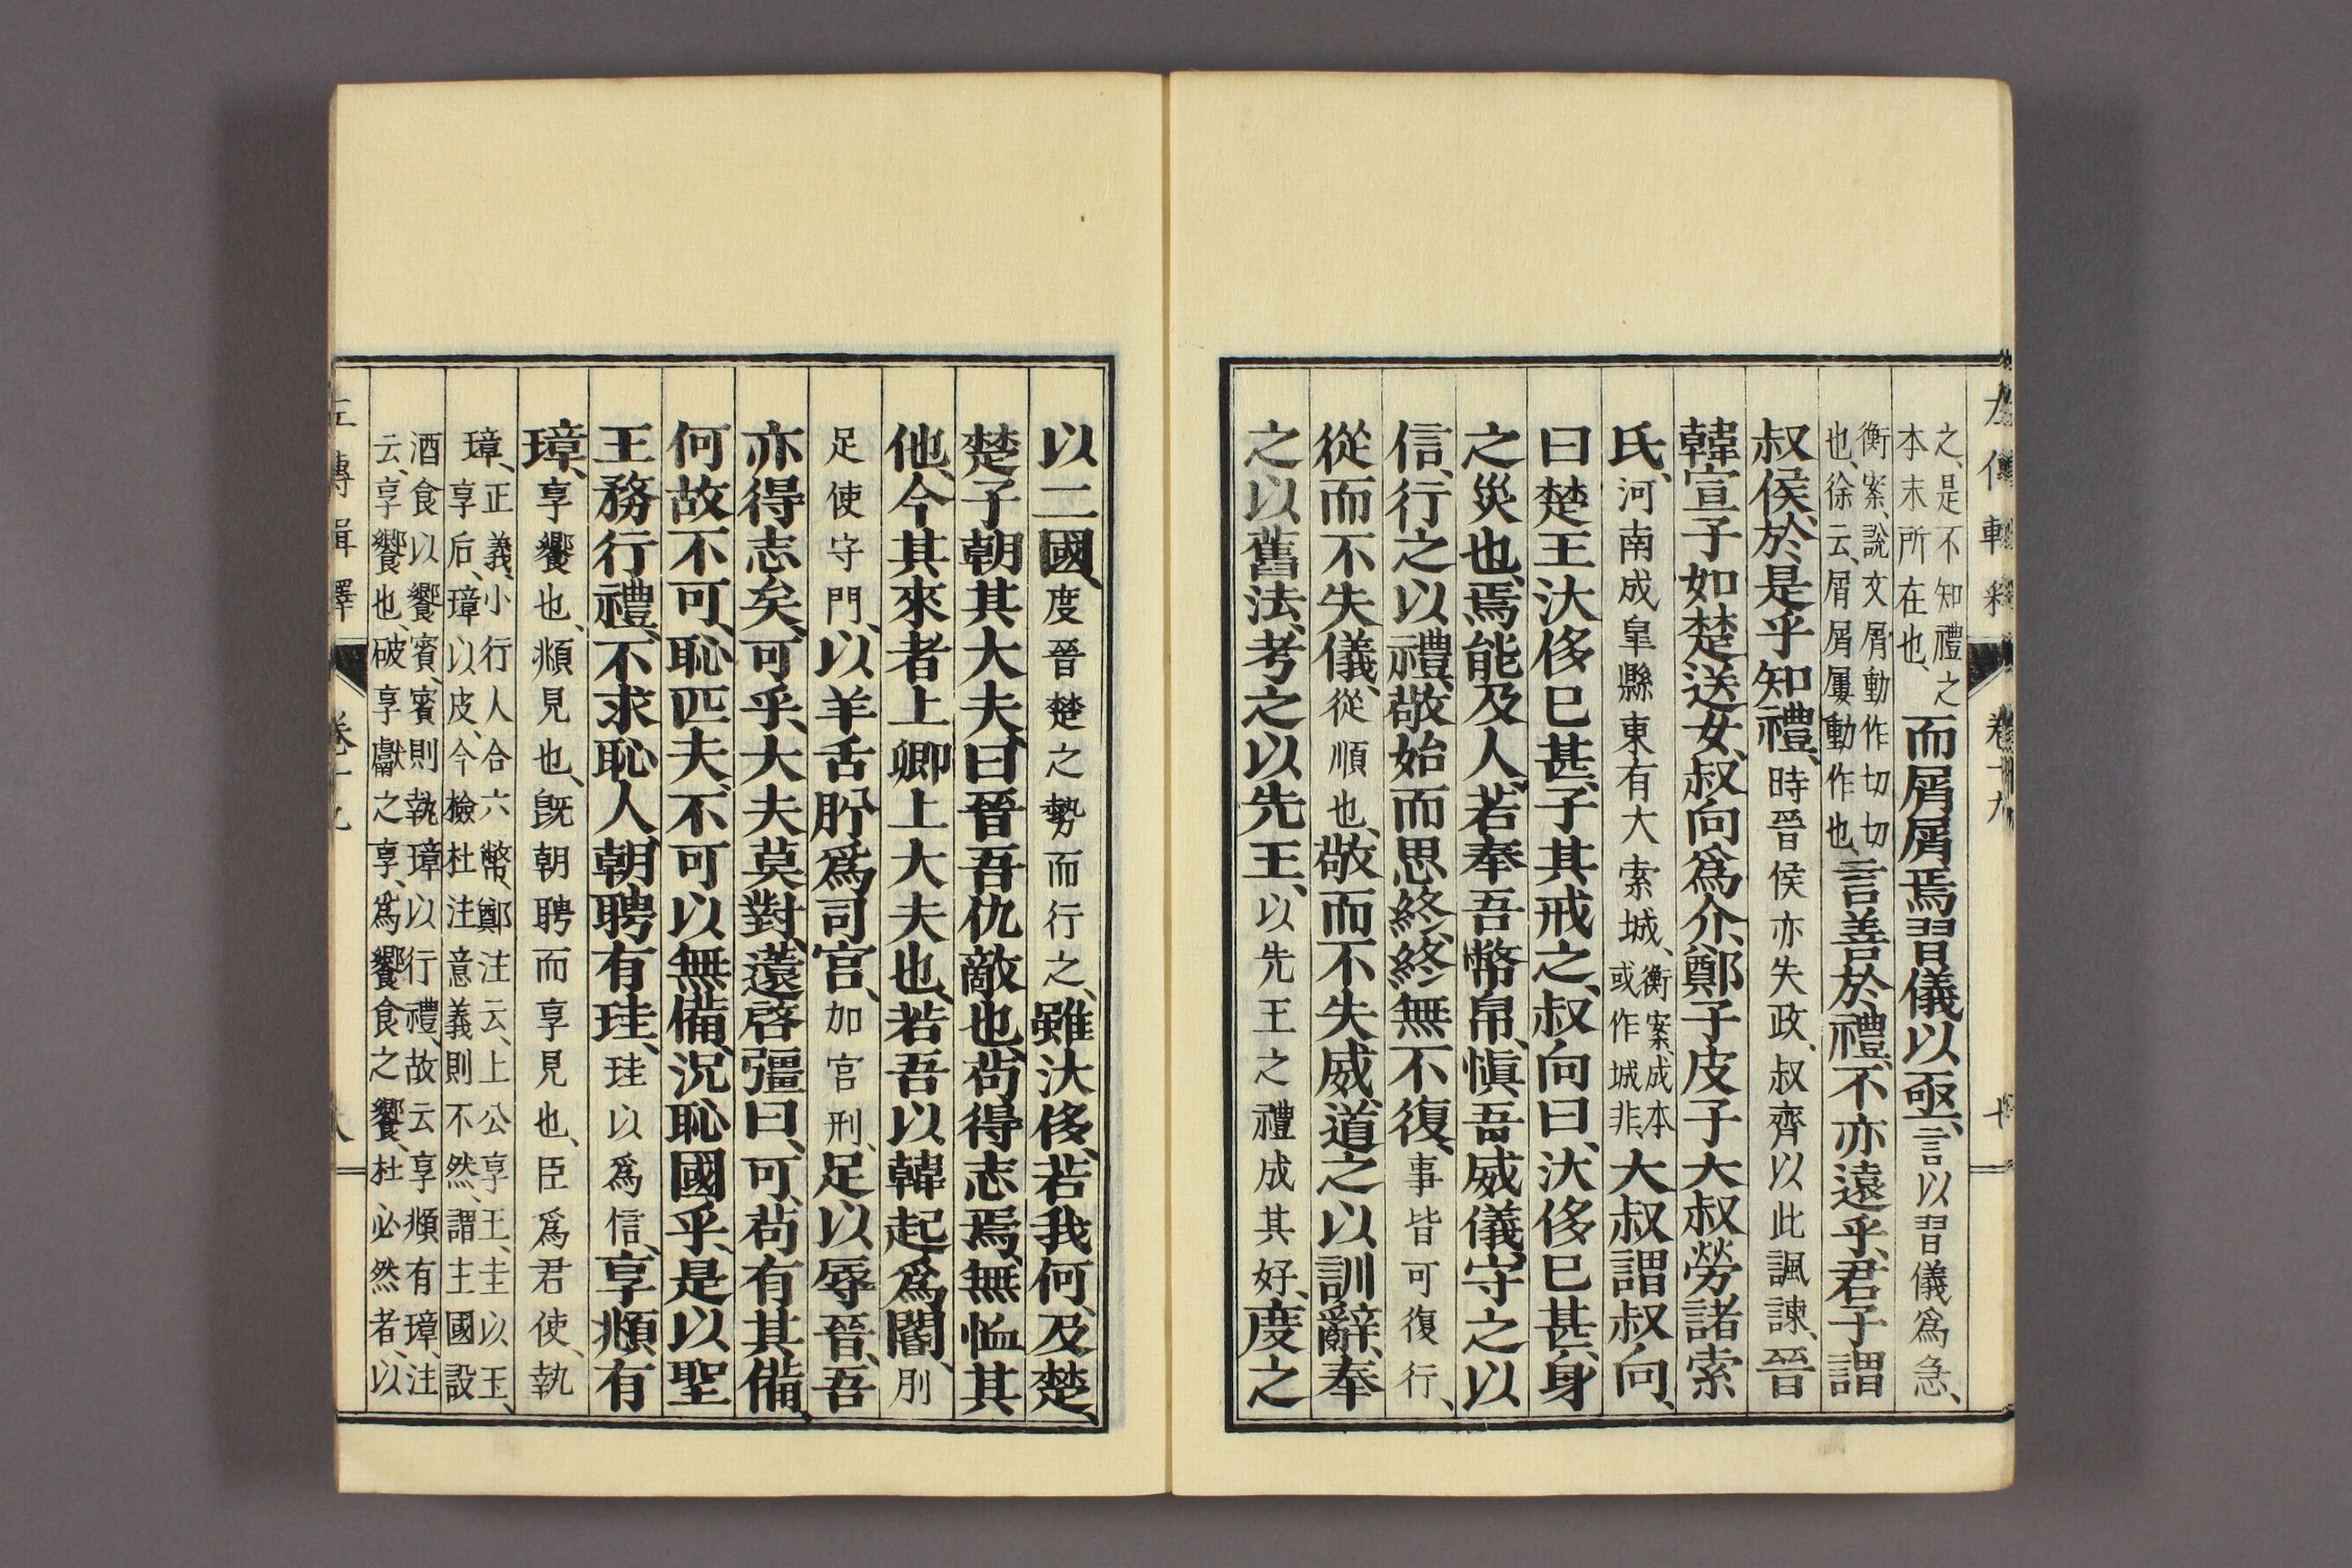 之、是不知禮之
本末所在也、
而屑屑焉習儀以亟、言以習儀爲急、
衡案、說文屑動作切切
也、徐云、屑屑屢動作也、
言善於禮、不亦遠乎、君子謂
叔侯、於是乎知禮、時晉侯亦失政、叔齊以此諷諫、晉
韓宣子如楚送女、叔向爲介、鄭子皮子大叔勞諸索
氏、河南成皐縣東有大索城、
衡案、成本
或作城非、
大叔謂叔向、
曰楚王汏侈已甚、子其戒之、叔向曰、汏侈已甚、身
之災也、焉能及人、若奉吾幣帛、愼吾威儀、守之以
信、行之以禮、敬始而思終、終無不復、事皆可復行、
從而不失儀、從順也、敬而不失威、道之以訓辭、奉
之以舊法、考之以先王、以先王之禮成其好、度之
以二國、度晉楚之勢而行之、雖汏侈、若我何、及楚、
楚子朝其大夫、曰晉吾仇敵也、苟得志焉、無恤其
他、今其來者上卿上大夫也、若吾以韓起爲閽、刖
足使守門、以羊舌肸爲司宮、加宮刑、足以辱晉、吾
亦得志矣、可乎、大夫莫對、薳啓彊曰、可、苟有其備、
何故不可、恥匹夫、不可以無備、況恥國乎、是以聖
王務行禮、不求恥人、朝聘有珪、珪以爲信、享頫有
璋、享饗也、頫見也、旣朝聘而享見也、臣爲君使、執
璋、正義、小行人合六幣、鄭注云、上公享王、圭以玉、
享后、璋以皮、今檢杜注意義則不然、謂主國設
酒食以饗賓、賓則執璋以行禮、故云享頫有璋、注
云、享饗也、破享獻之享、爲饗食之饗、杜必然者、以
卷十九